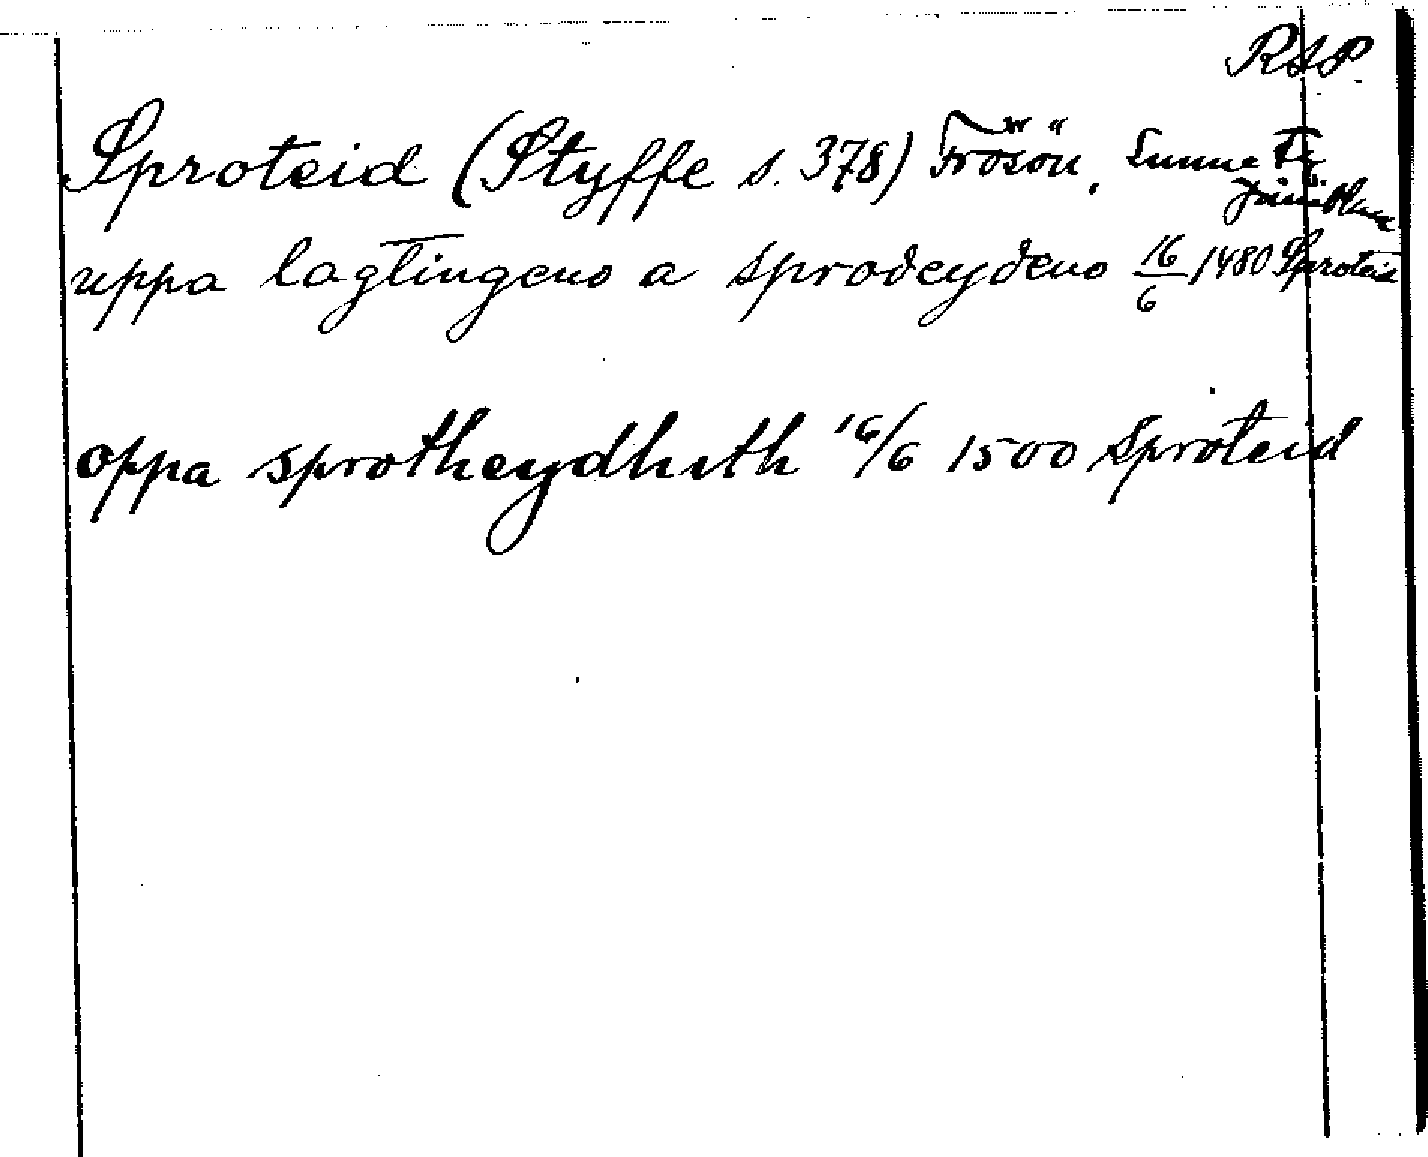 RAP.
Sproteid (Styffe s. 378) Frösön, Sunne Tg
Jämtland
uppa lagtingeno a sprodeydeno 16/6 1480 Sproteid
oppa sprotheydhith 16/6 1500 Sproteid